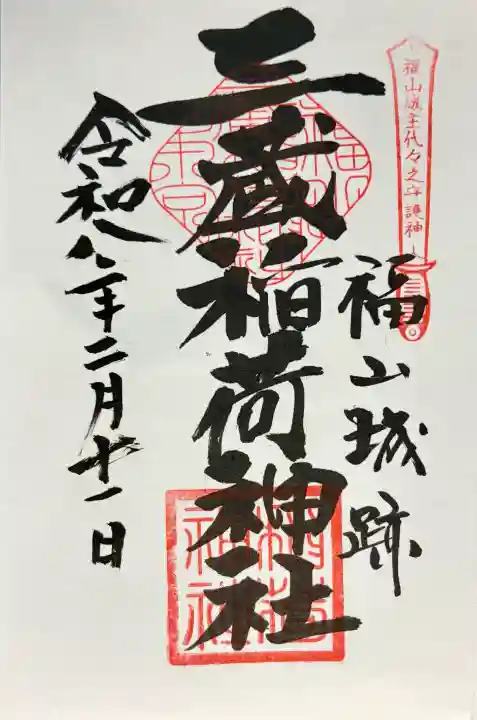 福山城主代々之守護神
福山城跡
三蔵稲荷神社
令和八年二月十一日
稲荷
神社